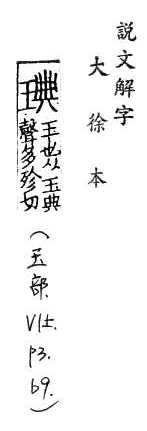 說文解字
大徐本
琠 玉也从玉典
聲多殄切
(玉部. V1上. p3. 69.)